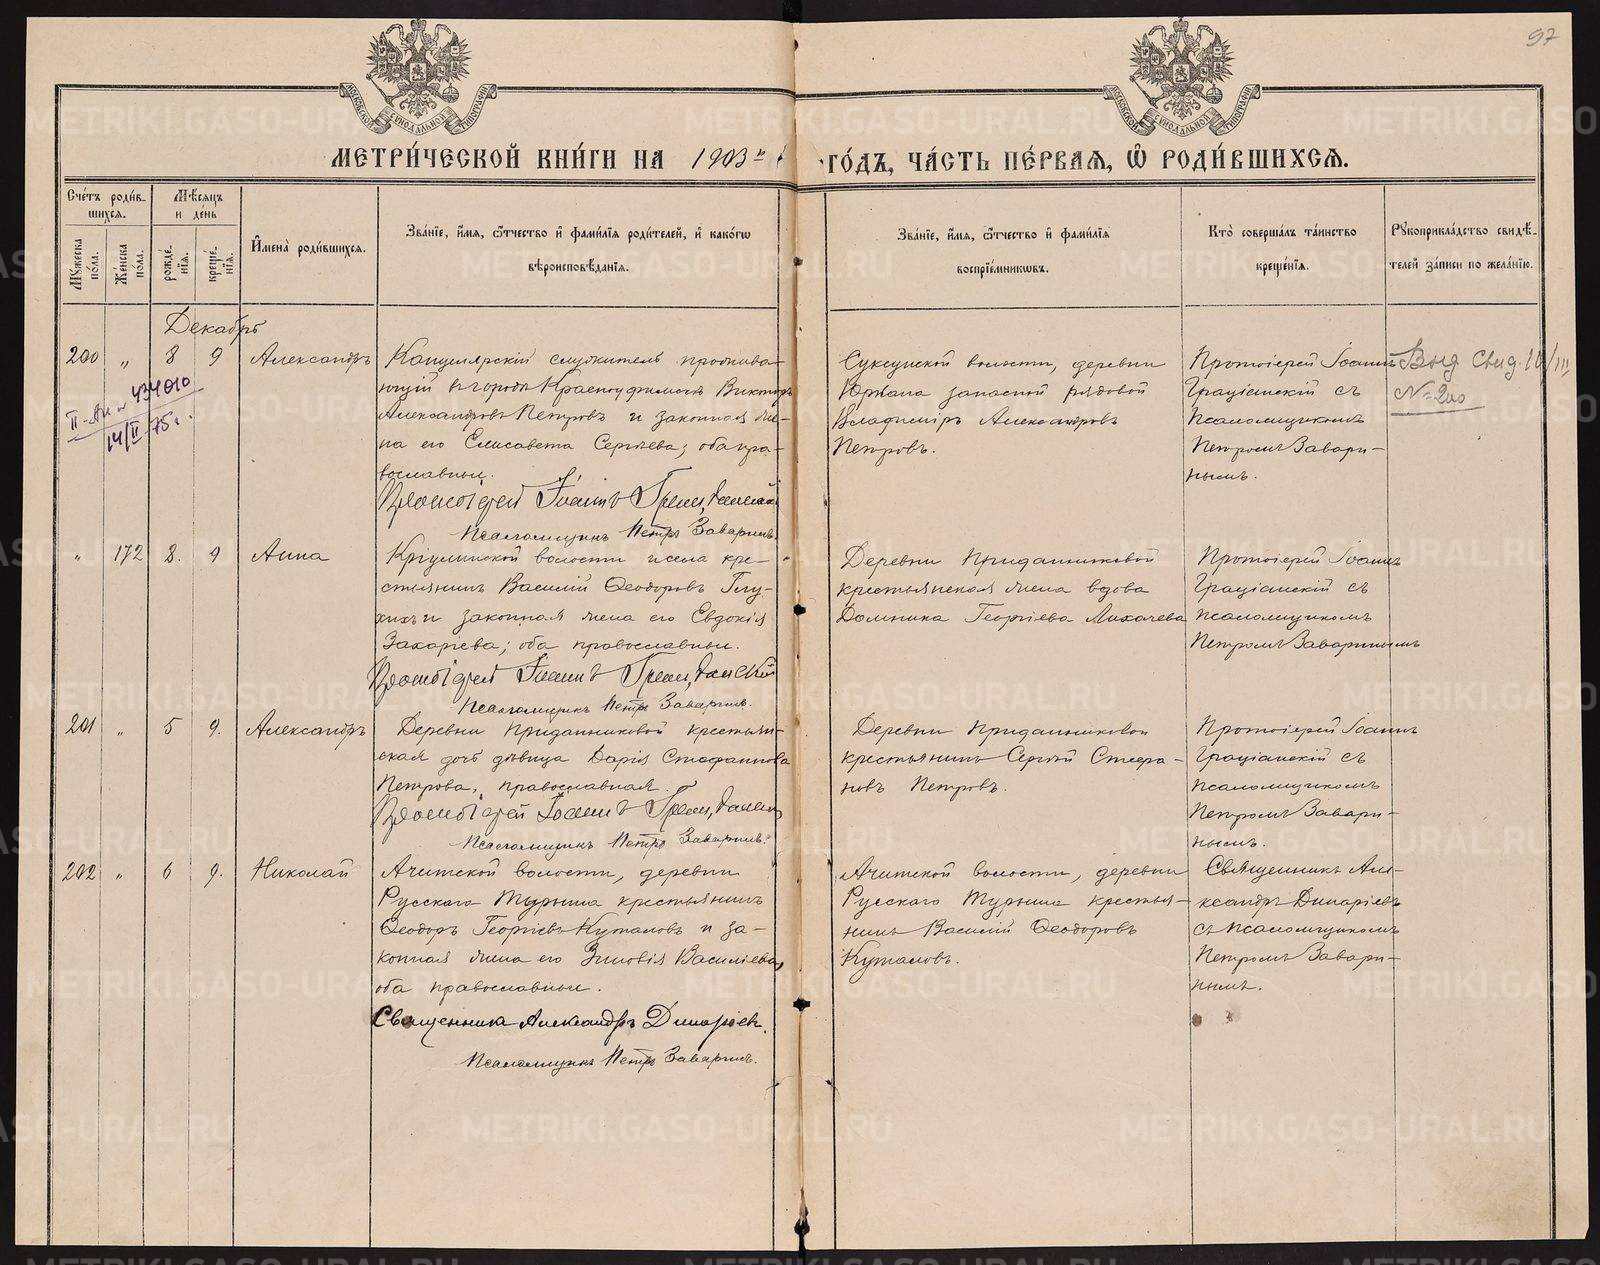 97
МЕТРИ́ЧЕСКОЙ КНИ́ГИ НА 1903 й ГО́ДЪ, ЧА́СТЬ ПЕ́РВАѦ, Ѡ҆ РОДИ́ВШИХСѦ.
Сче́тъ роди́в-
шихсѧ.
Мꙋ́жеска по́ла.
Же́нска по́ла.
Мѣ́сѧцъ
и де́нь
рожде́-нїѧ.
креще́-нїѧ.
И҆мена̀ роди́вшихсѧ.
Зва́нїе, и҆́мѧ, ѻ҆́тчество и҆ фами́лїѧ роди́телей, и҆ како́гѡ
вѣроисповѣ́данїѧ.
Зва́нїе, и҆́мѧ, ѻ҆́тчество и҆ фами́лїѧ
воспрїе́мникѡвъ.
Кто̀ соверша́лъ та́инство
креще́нїѧ.
Рꙋкоприкла́дство свидѣ́-
телей за́писи по жела́нїю.
Декабрь
200 " 8 9 Александръ
Канцелярскій служитель прожива-
ющій въ городѣ Красноуфимскѣ Викторъ
Александровъ Петровъ и законная же-
на его Елисавета Сергѣева; оба пра-
вославные.
Протоіерей Іоаннъ Граціанскій
Псаломщикъ Петръ Заваринъ
Суксунской волости, деревни
запасной рядовой
Владиміръ Александровъ
Петровъ.
Протоіерей Іоаннъ
Граціанскій съ
псаломщикомъ
Петромъ Завари-
нымъ.
Выд. Свид. 10/III
№ 200
434010
14/II 75г.
" 172 8. 9 Анна
волости и села кре-
стьянинъ Василій Ѳеодоровъ Глу-
хихъ и законная жена его Евдокія
Захаріева; оба православные.
Протоіерей Іоаннъ Граціанскій
Псаломщикъ Петръ Заваринъ.
Деревни Приданниковой
крестьянская жена вдова
Домника Георгіева Лихачева
Протоіерей Іоаннъ
Граціанскій съ
псаломщикомъ
Петромъ Заваринымъ
201 " 5 9. Александръ
Деревни Приданниковой крестьян-
ская дочь дѣвица Дарія Стефанова
Петрова, православная.
Протоіерей Іоаннъ Граціанскій
Псаломщикъ Петръ Заваринъ.
Деревни Приданниковой
крестьянинъ Сергій Стефа-
новъ Петровъ.
Протоіерей Іоаннъ
Граціанскій съ
псаломщикомъ
Петромъ Завари-
нымъ.
202 " 6 9. Николай
Ачитской волости, деревни
Русскаго Турыша крестьянинъ
Ѳеодоръ Георгіевъ Кутановъ и за-
конная жена его Зиновія Василіева,
оба православные.
Священникъ Александръ Динаріевъ.
Псаломщикъ Петръ Заваринъ.
Ачитской волости, деревни
Русскаго Турыша крестья-
нинъ Василій Ѳеодоровъ
Кутановъ.
Священникъ Але-
ксандръ Динаріевъ
съ псаломщикомъ
Петромъ Завари-
нымъ.
METRIKI.GASO-URAL.RU